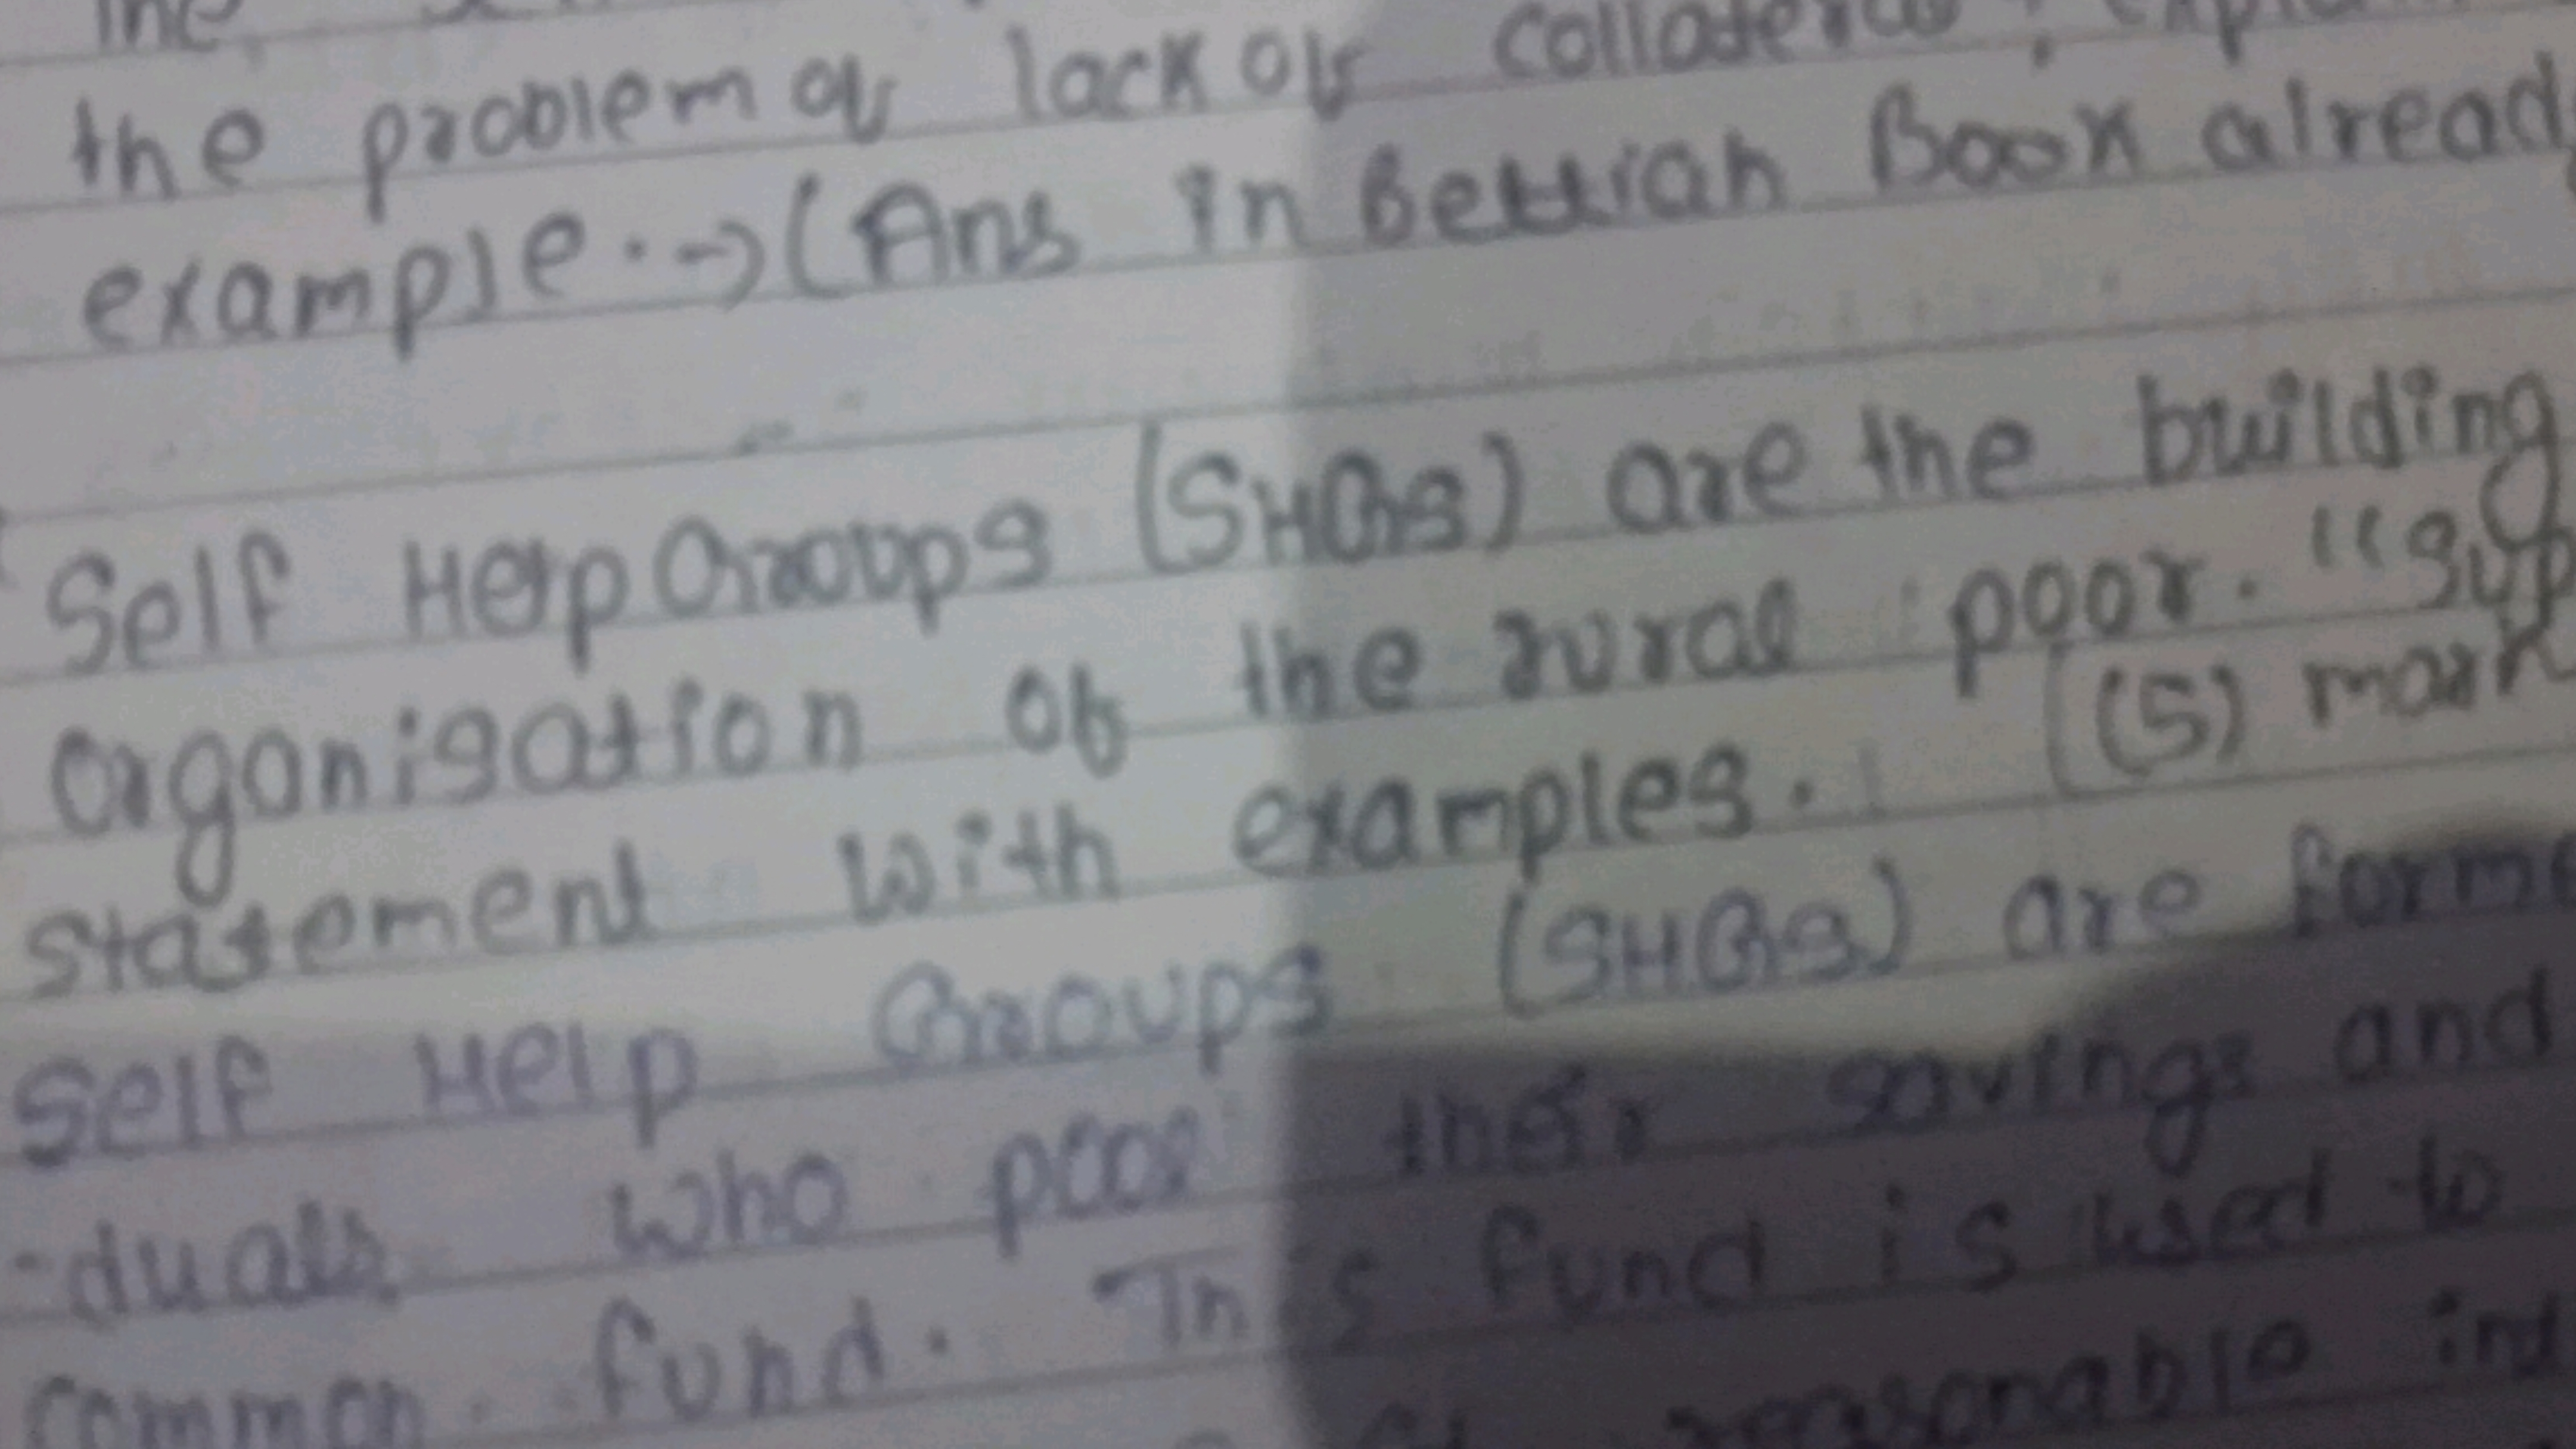 the problem of lack of collateral
example. -> (Ans in Bettiah Book already
Self Help Groups (SHGs) are the building
organisation of the rural poor. "Sup
statement with examples. [(5) mark
Self Help Groups (SHGs) are forme
-duals who pool their savings and
common fund. This fund is used to
reasonable int